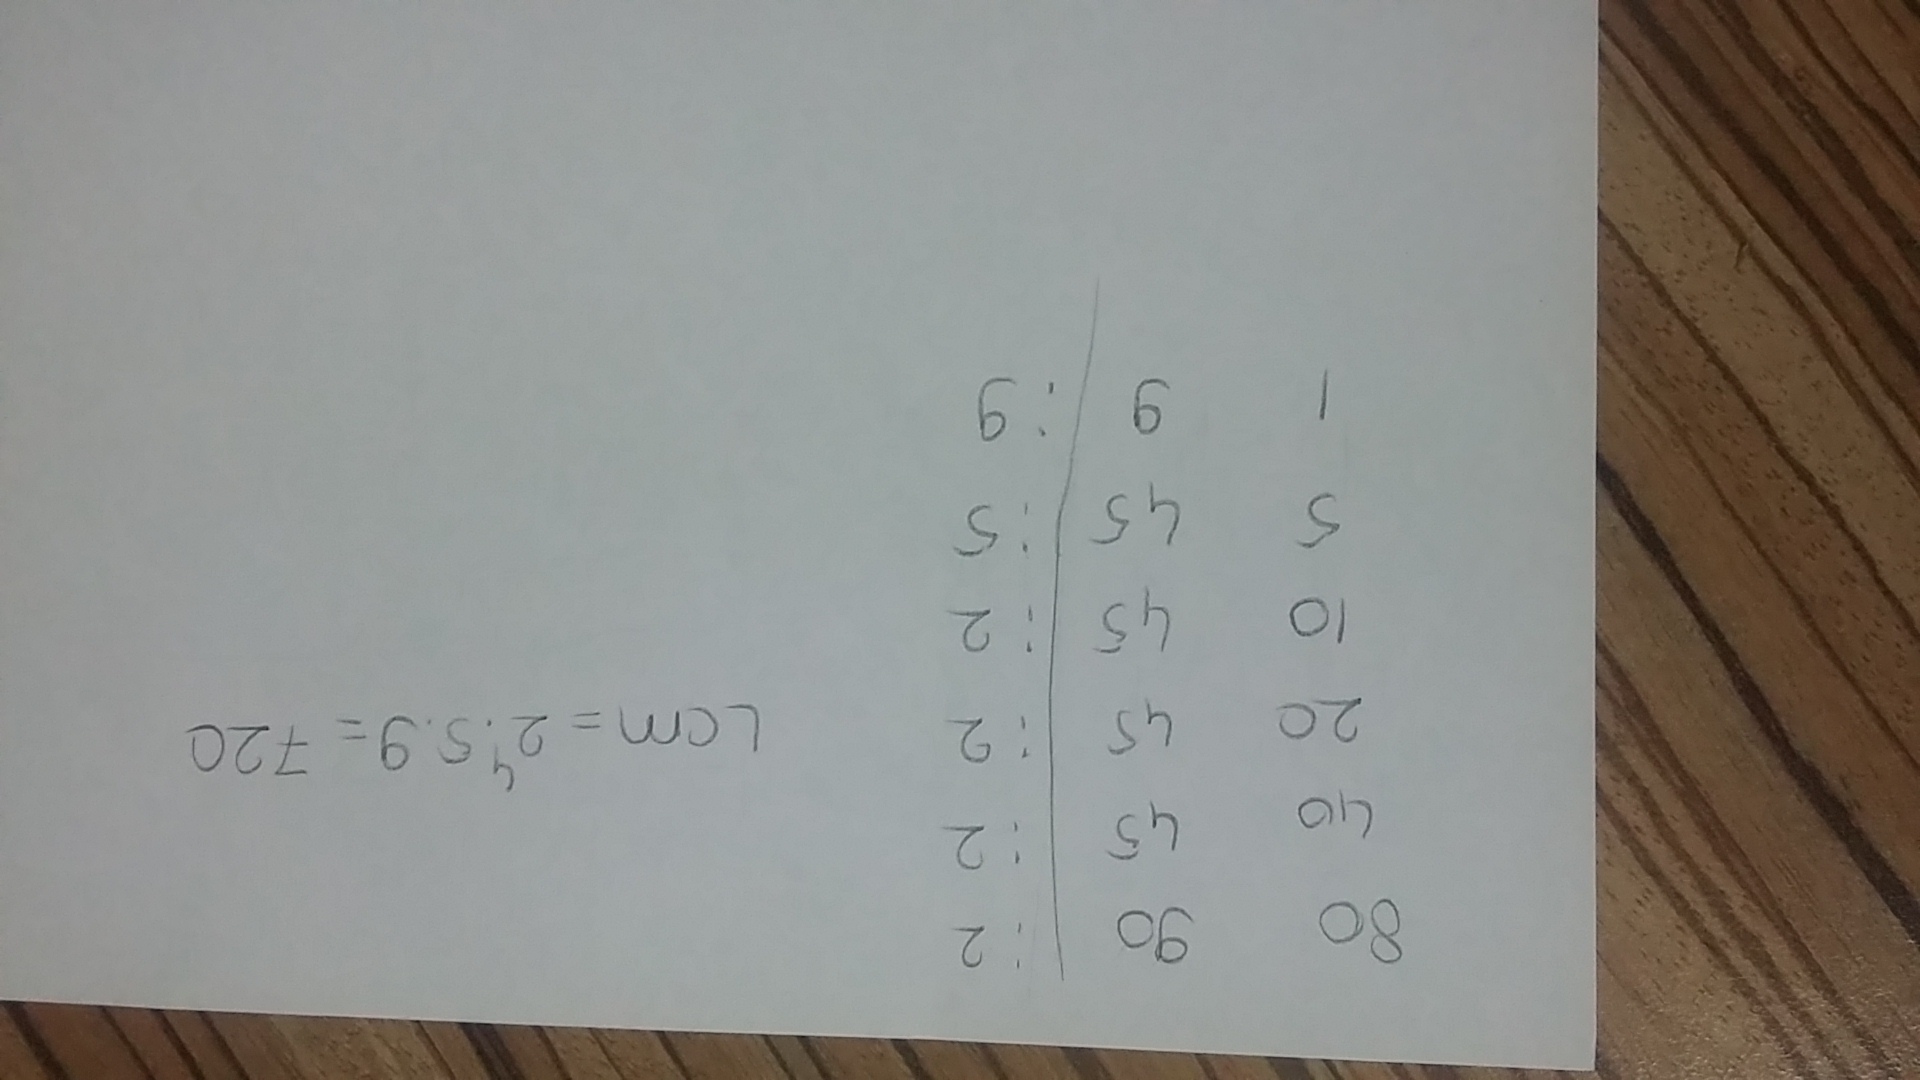 80 90 :2
40 45 :2
20 45 :2 Lcm = 2⁴.5.9 = 720
10 45 :2
5 45 :5
1 9 :9